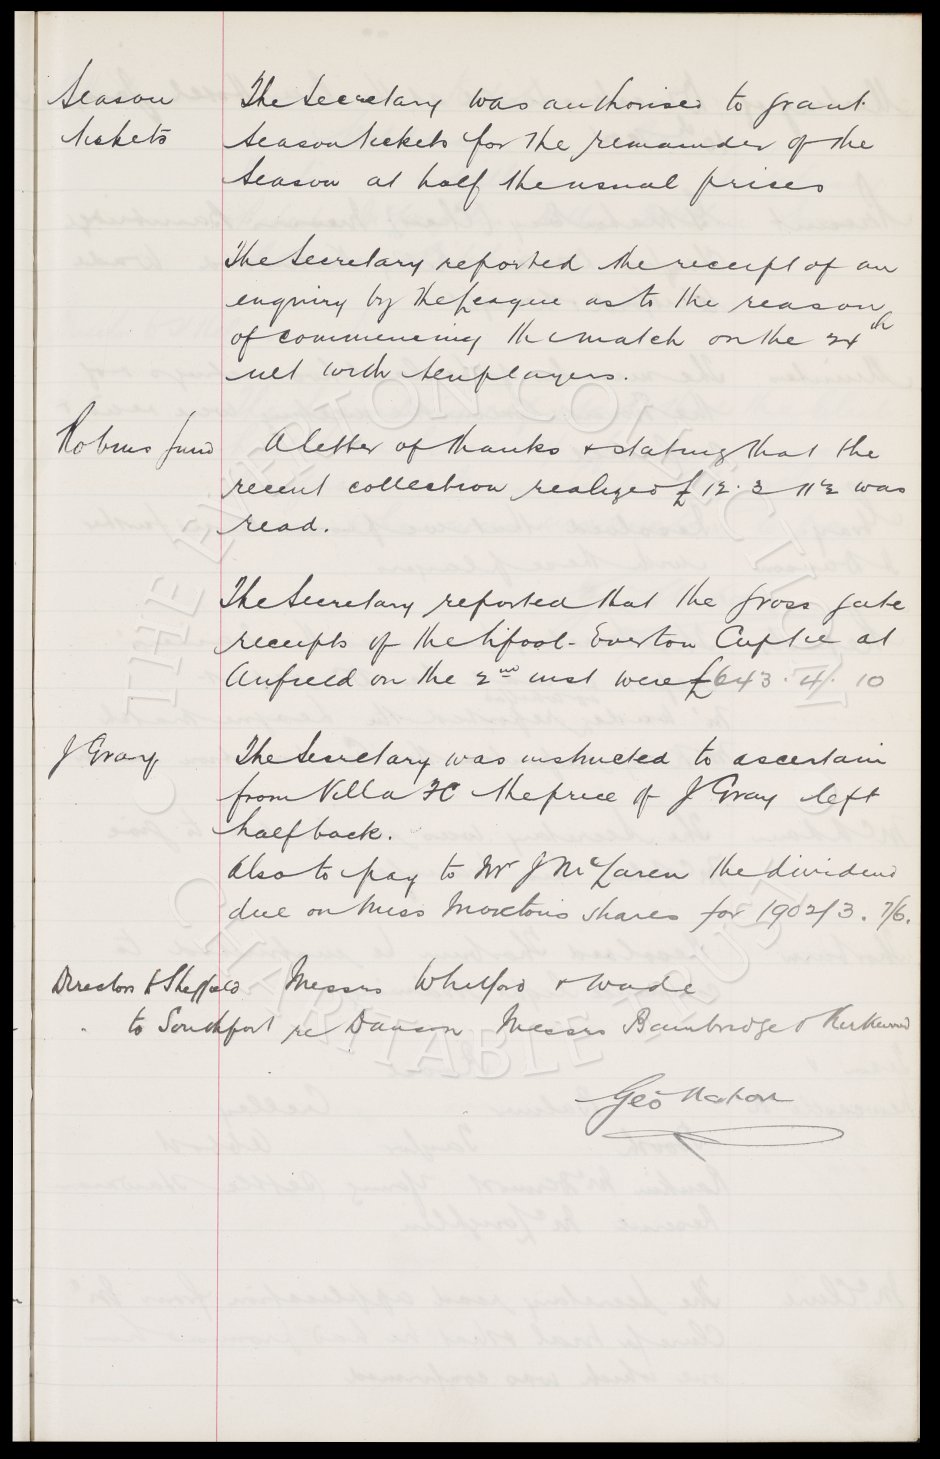 Season
tickets
The Secretary was authorised to grant
Season tickets for the remainder of the
Season at half the usual prices
The Secretary reported the receipt of an
enquiry by the League as to the reason
of commencing the match on the 24th
ult with ten players.
Robins fund
A letter of thanks & stating that the
recent collection realized £12. 3 11½ was
read.
The Secretary reported that the gross gate
receipts of the L'pool - Everton Cup tie at
Anfield on the 2nd inst were £643. 4/. 10
J Gray
The Secretary was instructed to ascertain
from Villa FC the price of J Gray left
half back.
Also to pay to Mr J McLaren the dividend
due on Miss Moxton's shares for 1902/3. 7/6.
Directors to Sheffield Messrs Whitford & Wade
to Southport re Dawson Messrs Bainbridge & Kirkwood
Geo Mahon
THE EVERTON COLLECTION
CHARITABLE TRUST